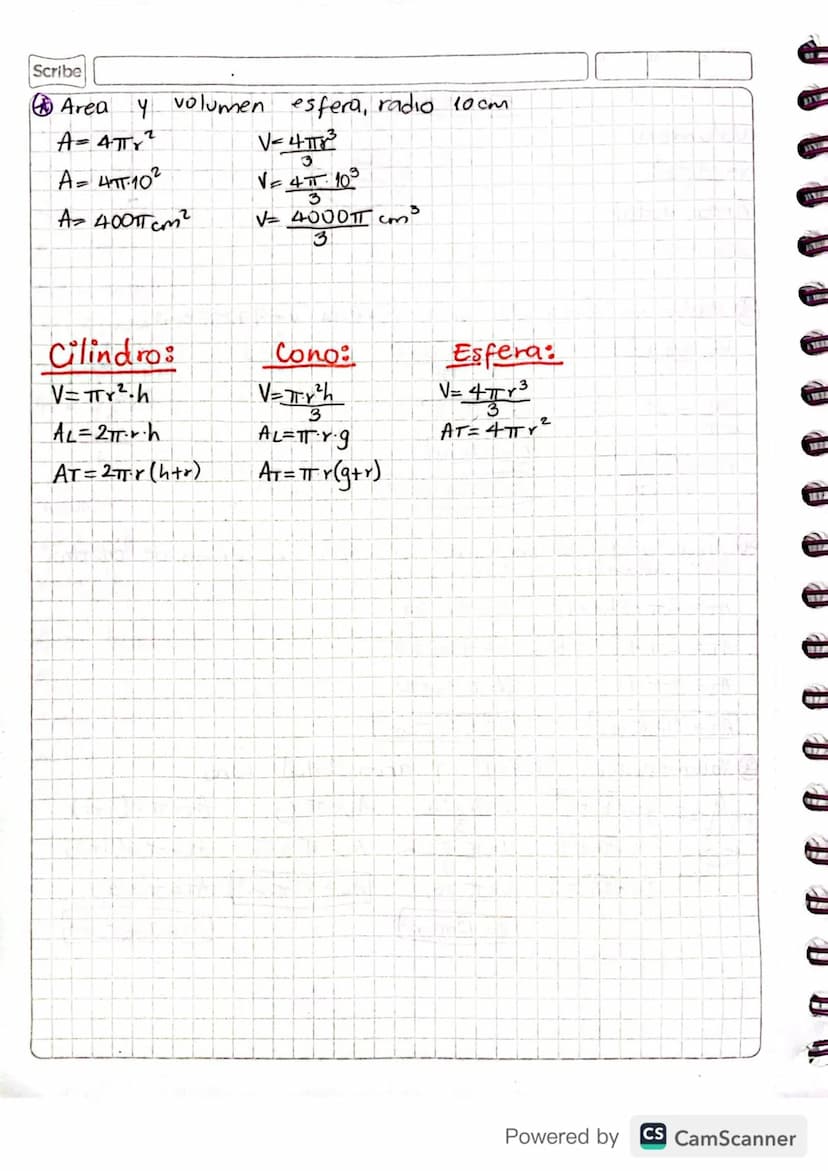 Scribe
Area y volumen esfera, radio 10cm
A= 4πr²
A= 4π·10²
A= 400π cm²
V= 4πr³/3
V= 4π·10³/3
V= 4000π/3 cm³
Cilindro:
V= πr²·h
AL= 2π·r·h
AT= 2π·r(h+r)
Cono:
V= π·r²h/3
AL= π·r·g
AT= π r(g+r)
Esfera:
V= 4πr³/3
AT= 4πr²
Powered by CS CamScanner